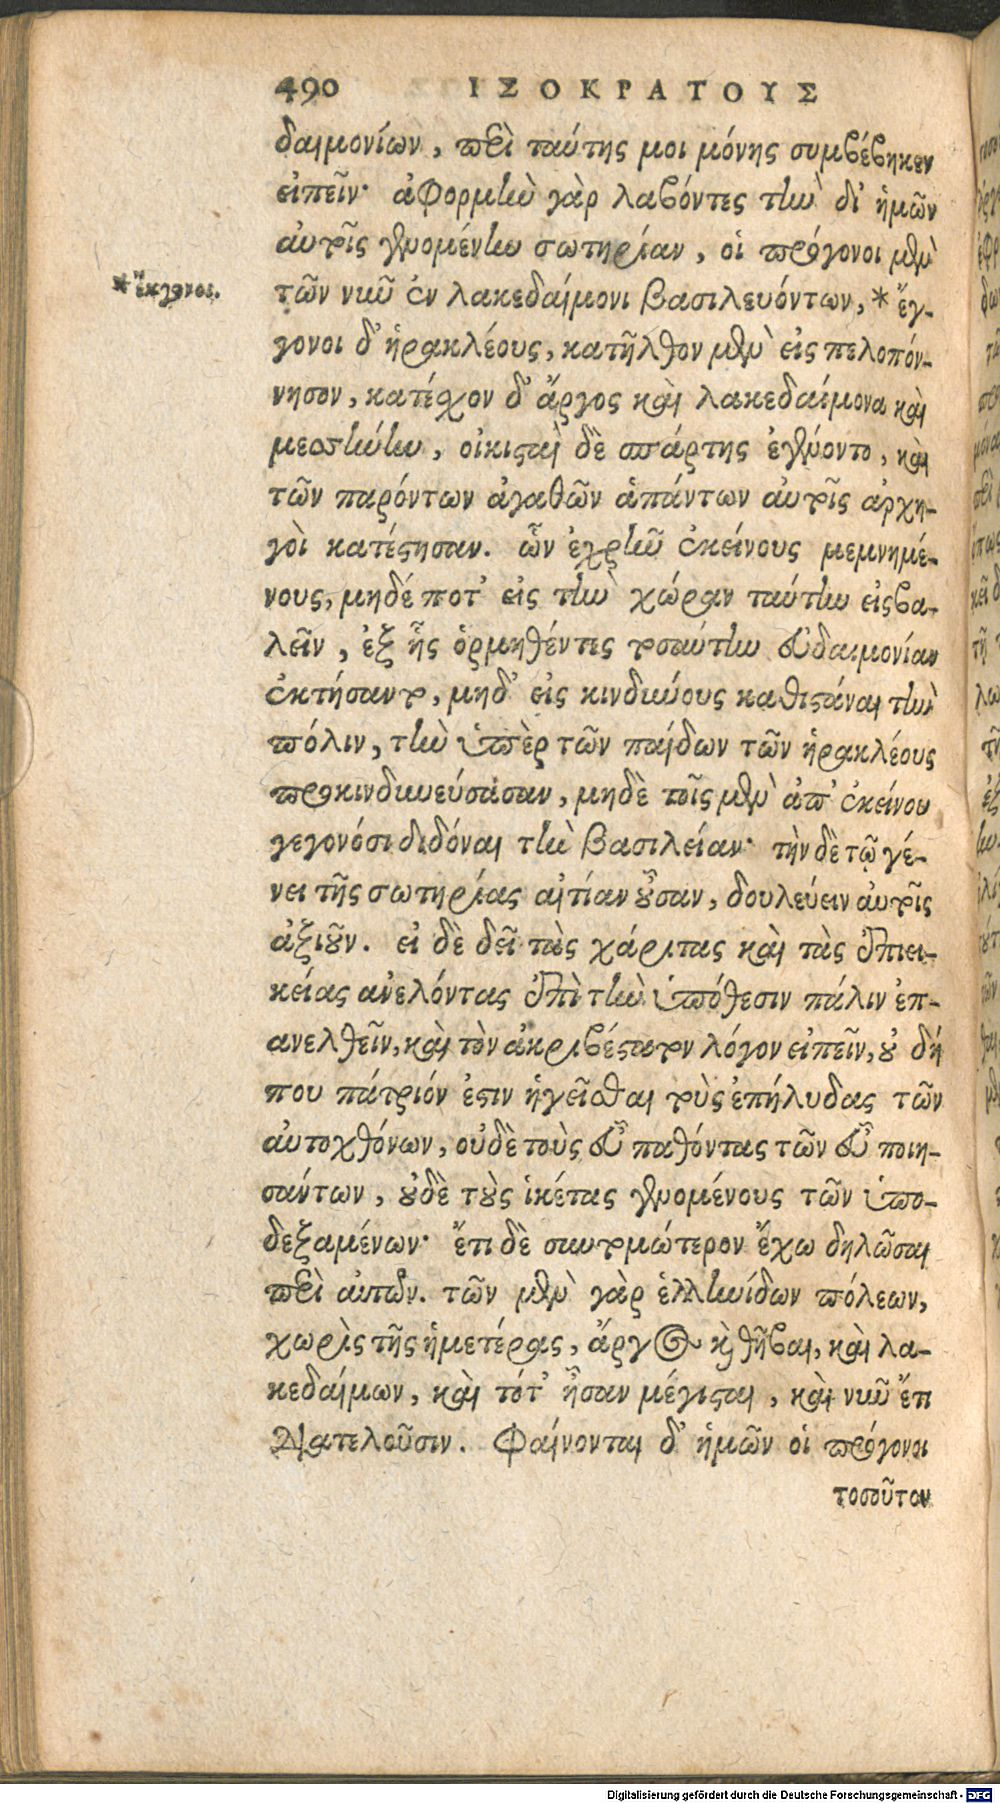 490 ΙΣΟΚΡΑΤΟΥΣ
δαιμονίων, περὶ ταύτης μοι μόνης συμβέβηκεν
εἰπεῖν· ἀφορμὴν γὰρ λαβόντες τὴν δι' ἡμῶν
αὐτοῖς γενομένην σωτηρίαν, οἱ πρόγονοι μὲν
*ἔκγονοι.
τῶν νῦν ἐν λακεδαίμονι βασιλευόντων, * ἔγ-
γονοι δ' ἡρακλέους, κατῆλθον μὲν εἰς πελοπόν-
νησον, κατέχον δ' ἄργος καὶ λακεδαίμονα καὶ
μεσσήνην, οἰκισταὶ δὲ σπάρτης ἐγένοντο, καὶ
τῶν παρόντων ἀγαθῶν ἁπάντων αὐτοῖς ἀρχη-
γοὶ κατέστησαν. ὧν ἐχρῆν ἐκείνους μεμνημέ-
νους, μηδέ ποτ' εἰς τὴν χώραν ταύτην εἰσβα-
λεῖν, ἐξ ἧς ὁρμηθέντες τοσαύτην εὐδαιμονίαν
ἐκτήσαντο, μηδ' εἰς κινδύνους καθιστάναι τὴν
πόλιν, τὴν ὑπὲρ τῶν παίδων τῶν ἡρακλέους
προκινδυνεύσασαν, μηδὲ τοῖς μὲν ἀπ' ἐκείνου
γεγονόσι διδόναι τὴν βασιλείαν· τὴν δὲ τῷ γέ-
νει τῆς σωτηρίας αἰτίαν οὖσαν, δουλεύειν αὐτοῖς
ἀξιοῦν. εἰ δὲ δεῖ τὰς χάριτας καὶ τὰς ἐπιει-
κείας ἀνελόντας ἐπὶ τὴν ὑπόθεσιν πάλιν ἐπ-
ανελθεῖν, καὶ τὸν ἀκριβέστατον λόγον εἰπεῖν, οὐ δή
που πάτριόν ἐστιν ἡγεῖσθαι τοὺς ἐπήλυδας τῶν
αὐτοχθόνων, οὐδὲ τοὺς εὖ παθόντας τῶν εὖ ποιη-
σάντων, οὐδὲ τοὺς ἱκέτας γενομένους τῶν ὑπο-
δεξαμένων· ἔτι δὲ συντομώτερον ἔχω δηλῶσαι
περὶ αὐτῶν. τῶν μὲν γὰρ ἑλληνίδων πόλεων,
χωρὶς τῆς ἡμετέρας, ἄργος καὶ θῆβαι, καὶ λα-
κεδαίμων, καὶ τότ' ἦσαν μέγισται, καὶ νῦν ἔτι
διατελοῦσιν. Φαίνονται δ' ἡμῶν οἱ πρόγονοι
τοσοῦτον
Digitalisierung gefördert durch die Deutsche Forschungsgemeinschaft - DFG